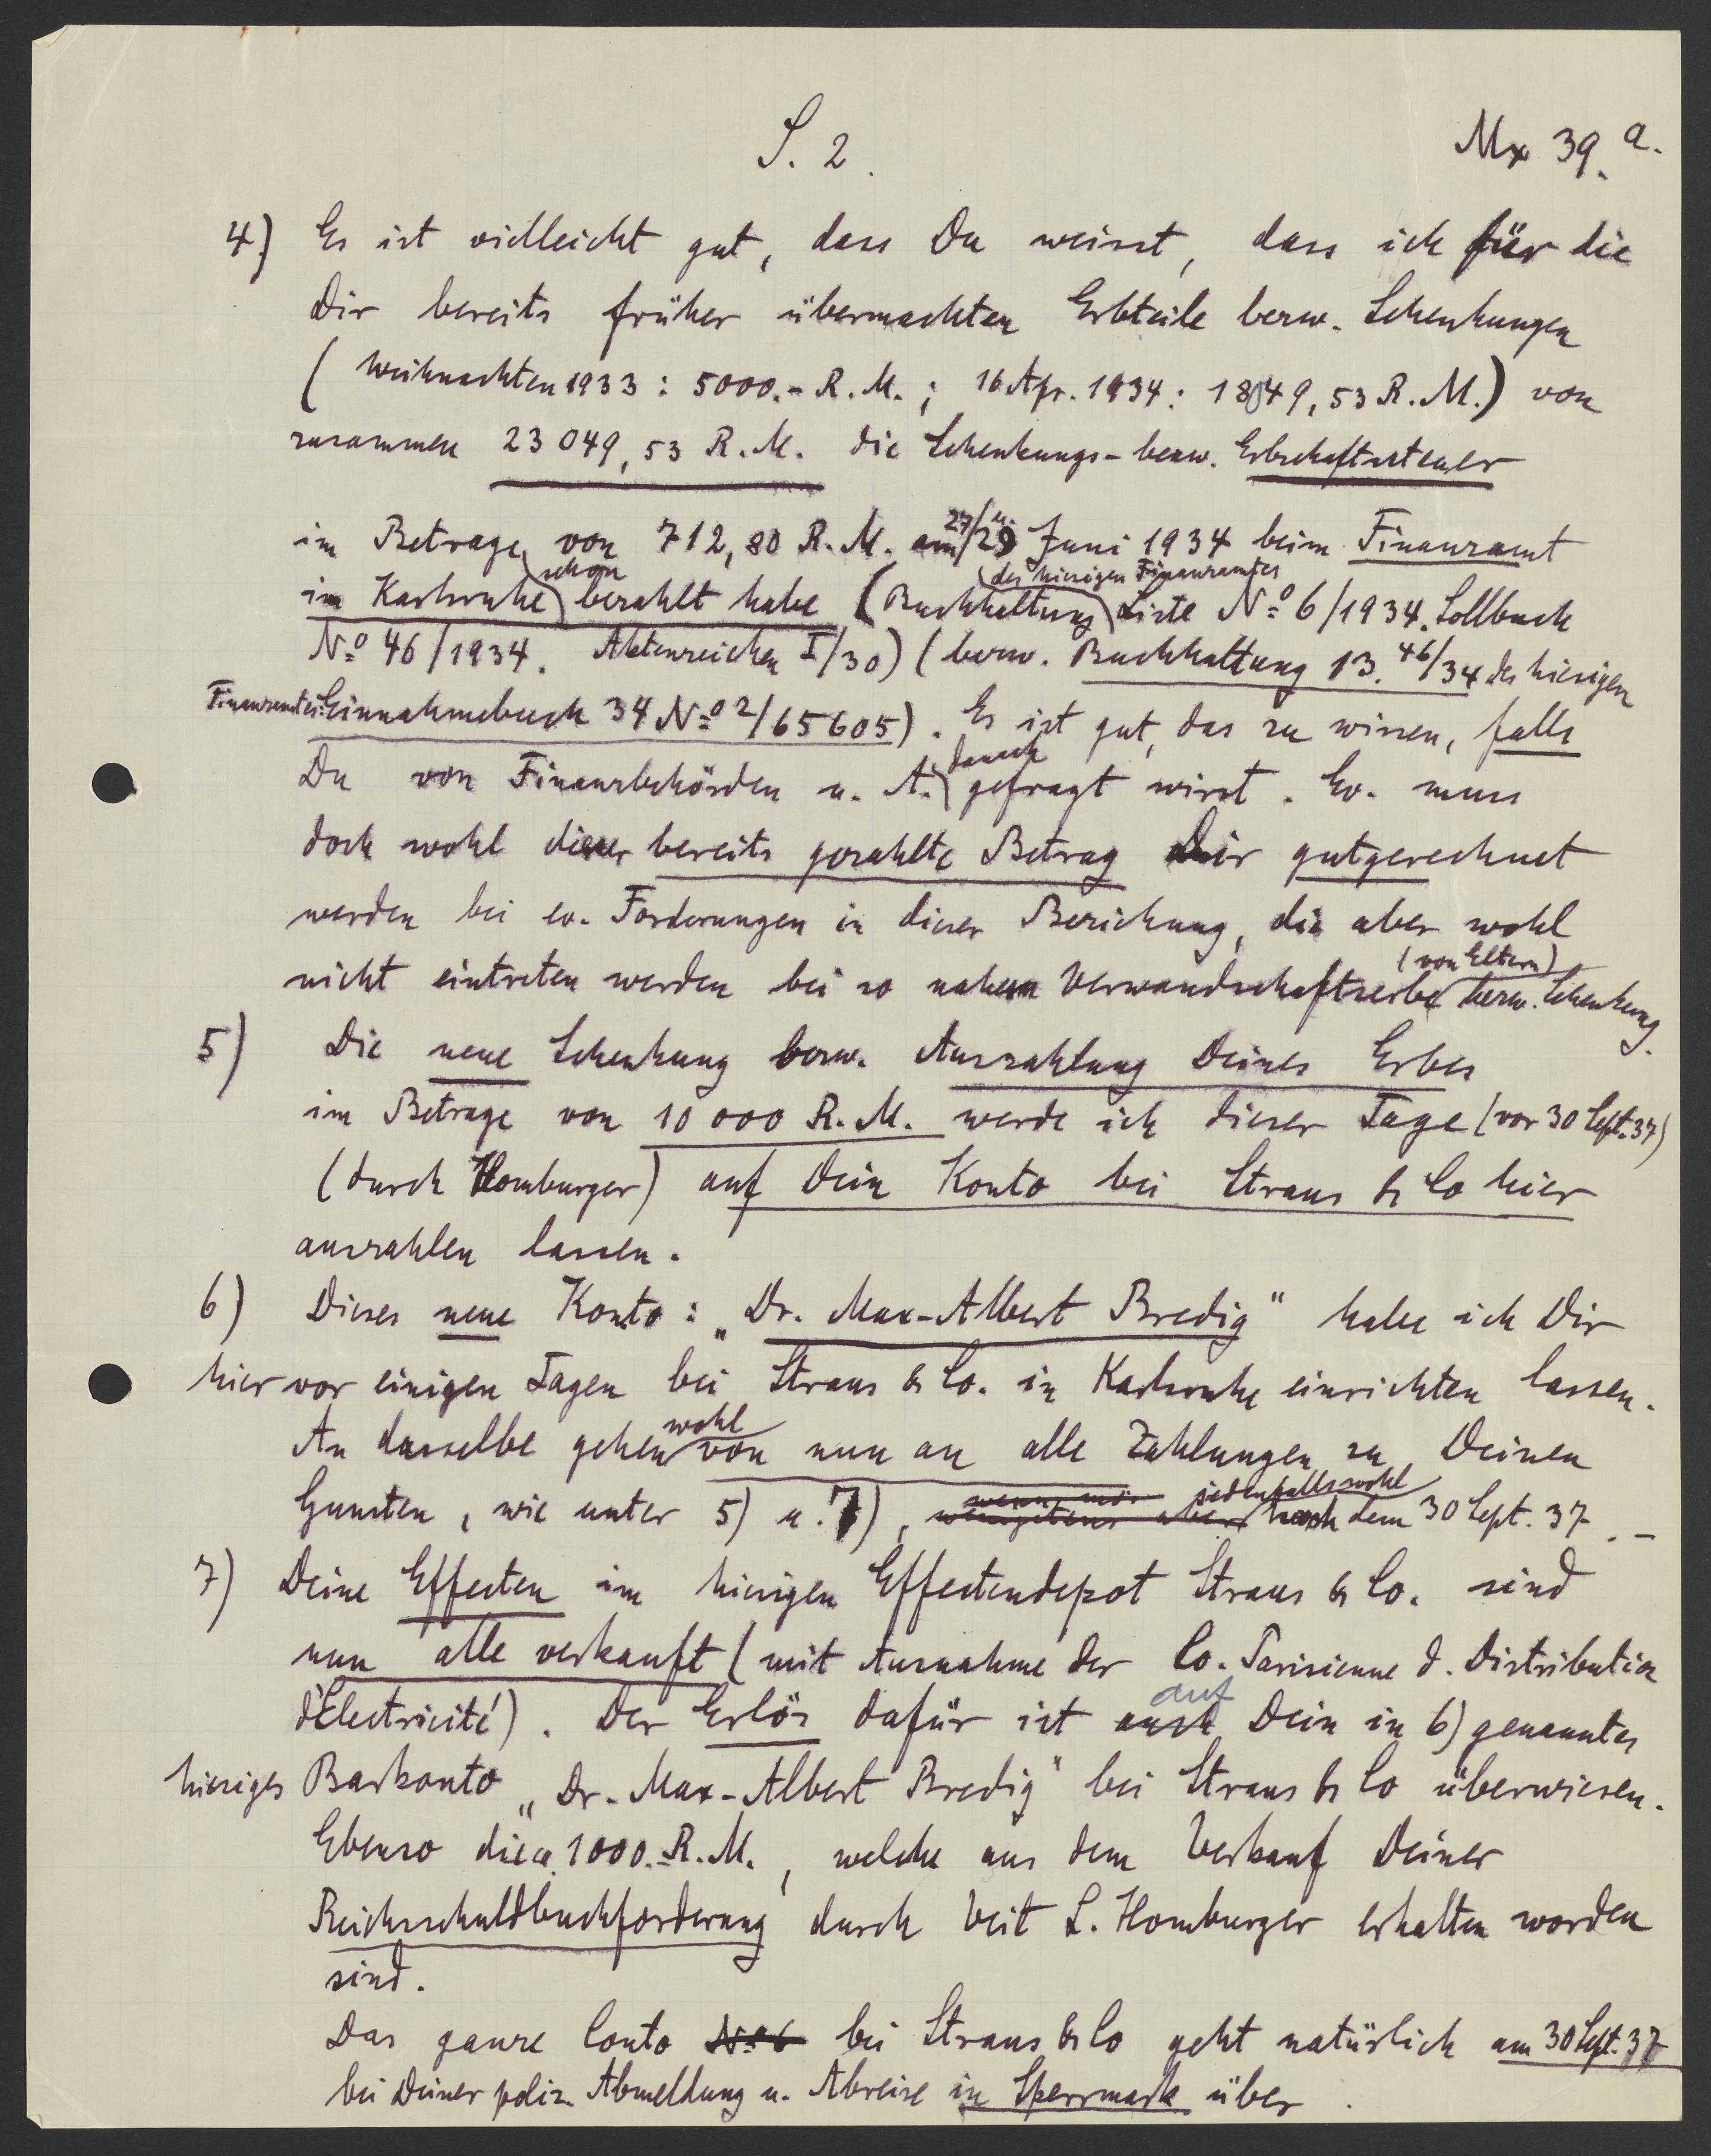 S. 2.
Mx 39.a.
4) Es ist vielleicht gut, dass Du weisst, dass ich für die
Dir bereits früher übermachten Erbteile bezw. Schenkungen
(Weihnachten 1933: 5000.- R.M.; 16 Apr. 1934: 18049,53 R.M.) von
zusammen 23 049,53 R.M. die Schenkungs- bezw. Erbschaftssteuer
im Betrage von 712,80 R.M. am 27/u. 29 Juni 1934 beim Finanzamt
in Karlsruhe schon bezahlt habe (Buchhaltung des hiesigen Finanzamtes Liste No 6/1934. Sollbuch
No 46/1934. Aktenzeichen I/30) (bezw. Buchhaltung 13. 46/34 des hiesigen
Finanzamtes: Einnahmebuch 34 No 2/65605). Es ist gut, das zu wissen, falls
Du von Finanzbehörden u. A. danach gefragt wirst. Ev. muss
doch wohl dieser bereits gezahlte Betrag Dir gutgerechnet
werden bei ev. Forderungen in dieser Beziehung, die aber wohl
nicht eintreten werden bei so nahem Verwandschaftserbe (von Eltern) bezw. Schenkung.
5) Die neue Schenkung bezw. Auszahlung Deines Erbes
im Betrage von 10 000 R.M. werde ich dieser Tage (vor 30 Sept. 37)
(durch Homburger) auf Dein Konto bei Straus & Co hier
auszahlen lassen.
6) Dieses neue Konto: „Dr. Max-Albert Bredig" habe ich Dir
hier vor einigen Tagen bei Straus & Co. in Karlsruhe einrichten lassen.
An dasselbe gehen wohl von nun an alle Zahlungen zu Deinen
Gunsten, wie unter 5) u. 7), wenigstens aber jedenfalls wohl nach dem 30 Sept. 37. -
7) Deine Effecten im hiesigen Effectendepot Straus & Co. sind
nun alle verkauft (mit Ausnahme der Co. Parisienne d. Distribution
d'Electricité). Der Erlös dafür ist auch auf Dein in 6) genanntes
hiesiges Barkonto „Dr. Max-Albert Bredig" bei Straus & Co überwiesen.
Ebenso die ca. 1000.- R.M., welche aus dem Verkauf Deiner
Reichsschuldbuchforderung durch Veit L. Homburger erhalten worden
sind.
Das ganze Conto No 6 bei Straus & Co geht natürlich am 30 Sept. 37
bei Deiner poliz. Abmeldung u. Abreise in Sperrmark über.